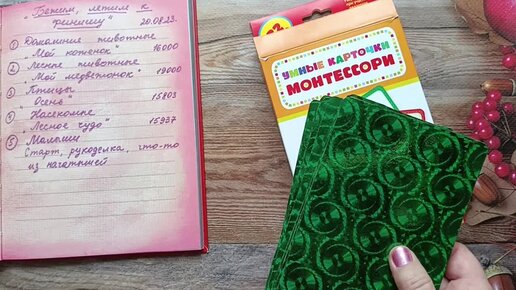 "Бежим, летим к
финишу" 20.08.23.
① Домашние животные
"Мой котенок" 16000
② Лесные животные
"Мой медвежонок" 19000
③ Птицы
"Осень" 15803
④ Насекомые
"Лесное чудо" 15937
⑤ Малыши
Старт, рукоделка, что-то
из начатышей
УМНЫЕ КАРТОЧКИ
МОНТЕССОРИ